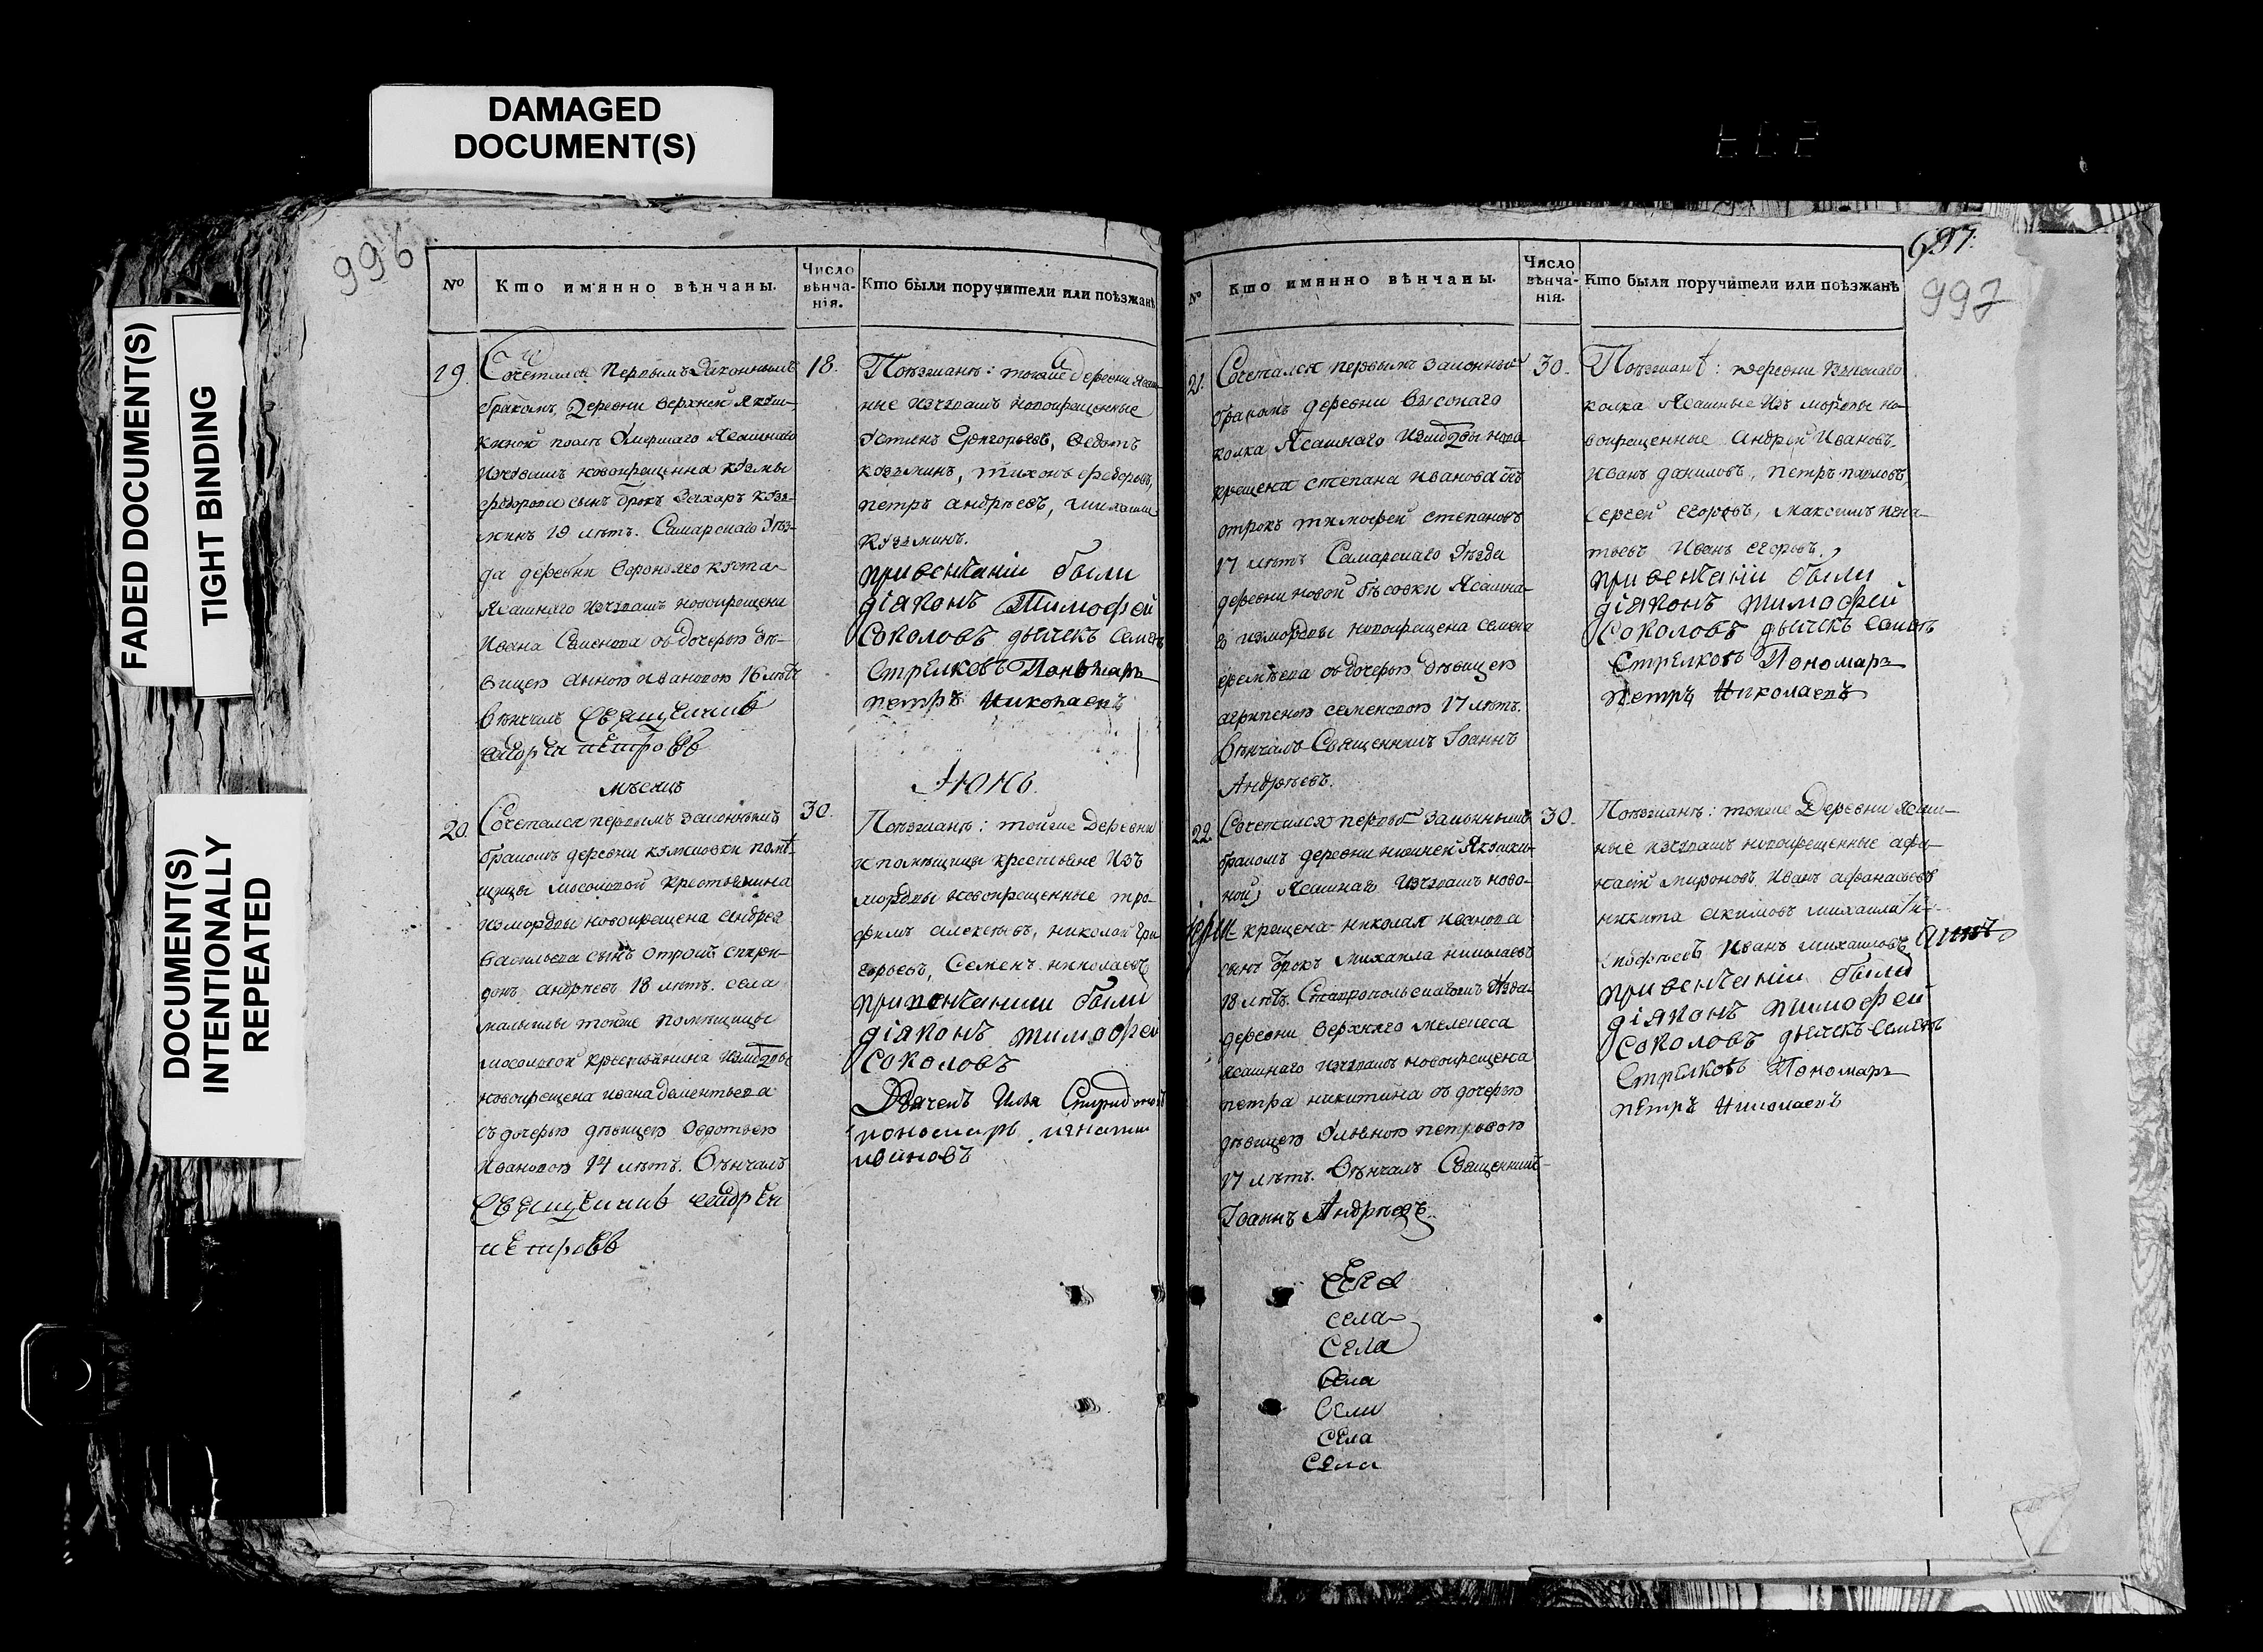 DAMAGED
DOCUMENT(S)
FADED DOCUMENT(S)
TIGHT BINDING
DOCUMENT(S)
INTENTIONALLY
REPEATED
996
№
Кто имянно вѣнчаны.
Число
вѣнча-
нія.
Кто были поручители или поѣзжанѣ
19.
Сочетался первымъ законнымъ
бракомъ, деревни верхней Якуш-
киной умершаго Ясашнаго
изчювашъ новокрещенна козмы
федорова сынъ отрокъ Захаръ козь-
минъ 19 лѣтъ. Самарскаго Уѣз-
да деревни куста
Ясашнаго изчювашъ новокрещена
Ивана Семенова съ дочерью дѣ-
вицею анною ивановою 16 лѣтъ
вѣнчалъ Священникъ
андрей петровъ
18.
Поѣзжанѣ: тояже деревни Ясаш-
ные изчювашъ новокрещенные
устинъ Григорьевъ, Ѳедотъ
козьминъ, тихонъ федоровъ,
петръ андрѣевъ, михаила
кузьминъ.
привенчаніи были
діяконъ Тимофей
Соколовъ дьячекъ Семенъ
Стрелковъ Пономарь
петръ Николаевъ
мѣсяцъ
Іюнь.
20.
Сочетался первымъ законнымъ
бракомъ деревни помѣ-
щицы мосоловой крестьянина
измордвы новокрещена андрея
васильева сынъ отрокъ спири-
донъ андрѣевъ 18 лѣтъ. села
тояже помѣщицы
мосоловой крестьянина измордвы
новокрещена ивана дементьева
съ дочерью дѣвицею Овдотьею
Ивановою 14 лѣтъ. Вѣнчалъ
Священникъ андрей
петровъ
30.
Поѣзжанѣ: тойже деревни
и помѣщицы крестьяне изъ
мордвы новокрещенные тро-
фимъ алексѣевъ, николай Гри
горьевъ, Семенъ николаевъ
привенчании были
діяконъ тимофей
Соколовъ
Дьячекъ Илья Спиридоновъ
пономарь игнатии
ивановъ
697
997
№
Кто имянно вѣнчаны.
Число
вѣнча-
нія.
Кто были поручители или поѣзжанѣ
21.
Сочетался первымъ законным
бракомъ деревни высокаго
колка Ясашнаго измордвы ново
крещена степана иванова сынъ
отрокъ тимофей степановъ
17 лѣтъ Самарскаго Уѣзда
деревни новой бѣсовки Ясашна-
го измордвы новокрещена семена
еремѣева съ дочерью дѣвицею
агрипеною семеновою 17 лѣтъ.
Вѣнчалъ Священникъ Іоаннъ
Андрѣевъ.
30.
Поѣзжанѣ: деревни высокаго
колка Ясашные изъ мордвы но-
вокрещенные андрей Ивановъ,
Иванъ даниловъ, петръ павловъ,
сергей егоровъ, максимъ игна-
тьевъ Иванъ егоровъ.
привенчаніи были
діяконъ тимофей
Соколовъ дьячекъ Семенъ
Стрелковъ Пономарь
петръ Николаевъ
22.
Сочетался первымъ законнымъ
бракомъ деревни нижней Якушки-
ной, Ясашнаго изчювашъ ново-
крещена николая иванова
сынъ отрокъ михаила николаевъ
18 лѣтъ. Ставропольскагожъ Уѣзда
деревни верхняго мелекеса
ясашнаго изчювашъ новокрещена
петра никитина съ дочерью
дѣвицею Ульяною петровою
17 лѣтъ. Вѣнчалъ Священникъ
Іоаннъ Андрѣевъ.
30.
Поѣзжанѣ: тояже деревни Ясаш-
ные изчювашъ новокрещенные афа-
насій мироновъ, Иванъ афанасьевъ
никита акимовъ михаила ти-
мофѣевъ Иванъ михаиловъ
привенчаніи были
діяконъ тимофей
Соколовъ дьячекъ Семенъ
Стрелковъ Пономарь
петръ Николаевъ
Села
села
Села
Села
Села
Села
Села